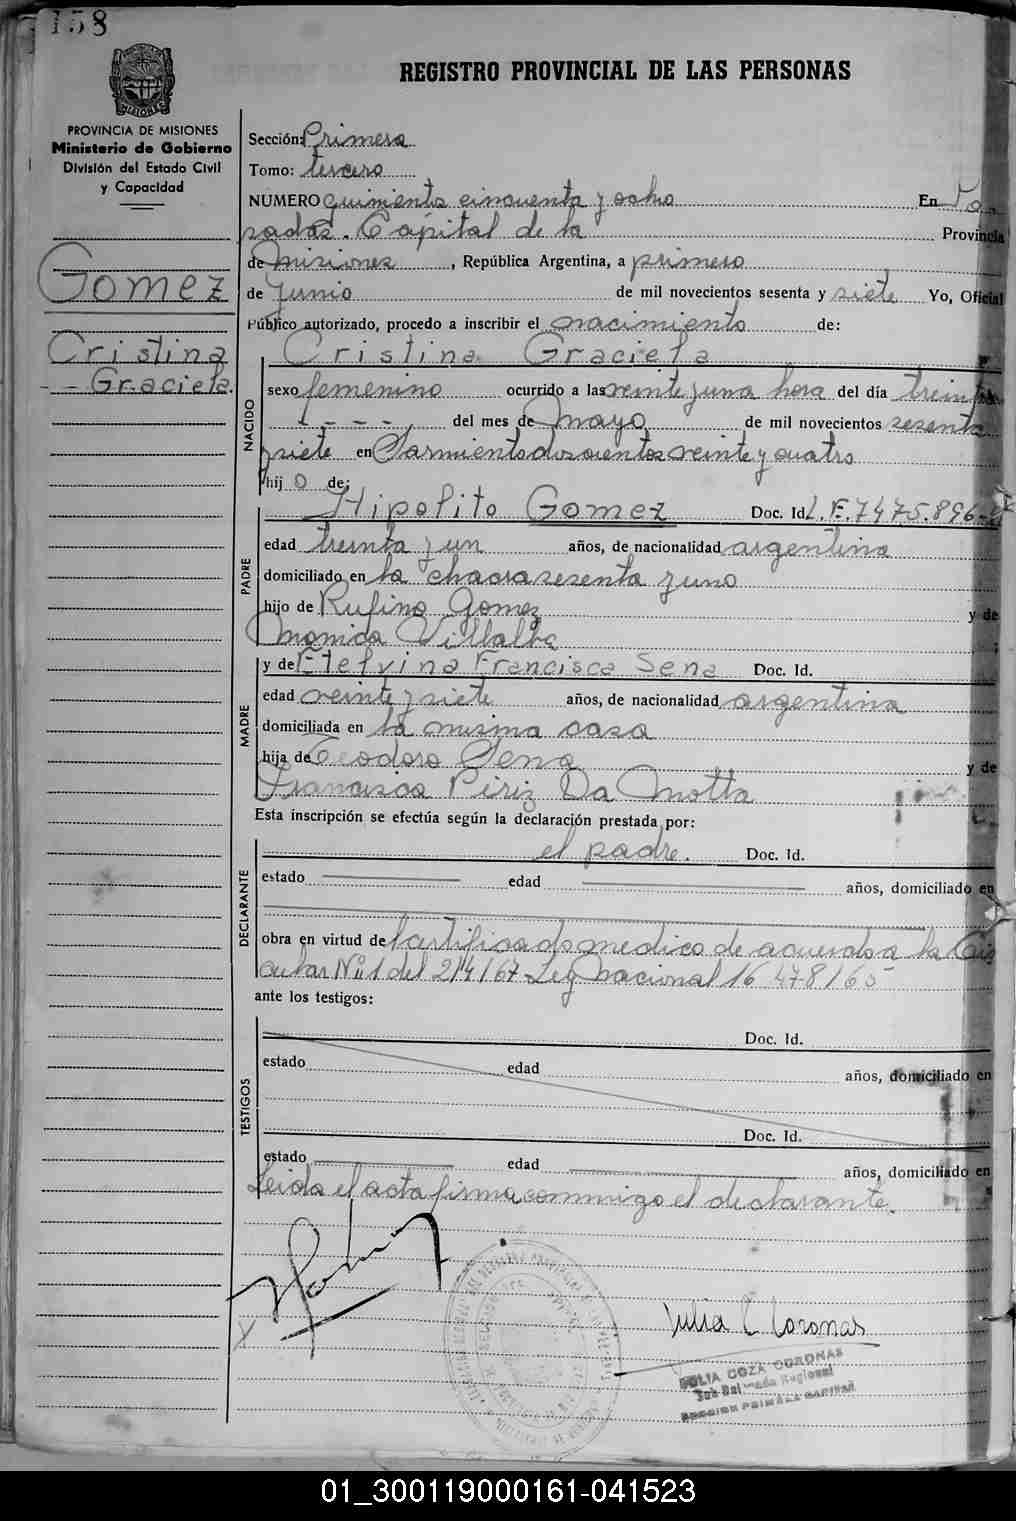 158
REGISTRO PROVINCIAL DE LAS PERSONAS
PROVINCIA DE MISIONES
Ministerio de Gobierno
División del Estado Civil
y Capacidad
Gomez
Cristina
-- Graciela.
Sección: Primera
Tomo: tercero
NUMERO quinientos cincuenta y ocho En Po
sadas. Capital de la Provincia
de Misiones, República Argentina, a primero
de Junio de mil novecientos sesenta y siete Yo, Oficial
Público autorizado, procedo a inscribir el nacimiento de:
Cristina Graciela
NACIDO
sexo femenino ocurrido a las veinte y una hora del día treinta
---- del mes de Mayo de mil novecientos sesenta
y siete en Sarmiento doscientos veinte y cuatro
hij o de:
PADRE
Hipolito Gomez Doc. Id. L.E. 7475.896
edad treinta y un años, de nacionalidad argentina
domiciliado en la chacra sesenta y uno
hijo de Rufino Gomez y de
Villalba
MADRE
y de Etelvina Francisca Sena Doc. Id.
edad veinte y siete años, de nacionalidad argentina
domiciliada en la misma casa
hija de Teodoro Sena y de
Francisca Piriz Da Motta
Esta inscripción se efectúa según la declaración prestada por:
DECLARANTE
el padre. Doc. Id.
estado edad años, domiciliado en
obra en virtud de certificado medico de acuerdo a la Cir
cular Nº 1 del 2/4/67 Ley Nacional 16 478/65
ante los testigos:
TESTIGOS
Doc. Id.
estado edad años, domiciliado en
Doc. Id.
estado edad años, domiciliado en
Leida el acta firma conmigo el declarante.
X
Julia C Coronas
JULIA COZA CORONAS
Sub Delegada Regional
SECCION PRIMERA CAPITAL
01_300119000161-041523